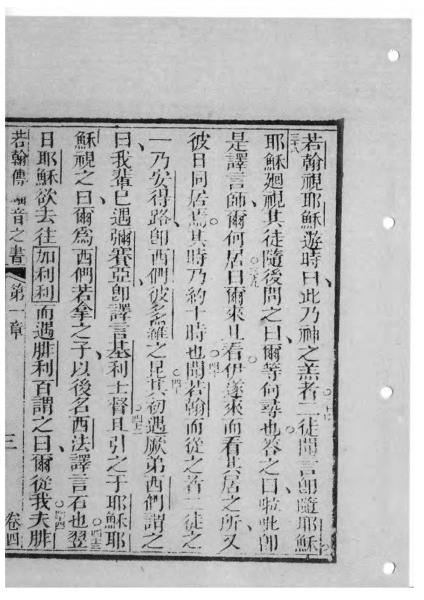 若翰視耶穌遊時曰此乃神之羔者二徒聞言卽隨耶穌
三八
耶穌廻視其徒隨後問之曰爾等何尋也答之曰㕸吡卽
是譯言師爾何居曰爾來且看伊遂來而看其居之所又
三九
彼日同居焉其時乃約十時也聞若翰而從之者二徒之
四十
一乃安得路卽西們彼多羅之兄其初遇厥弟西們謂之
四一
曰我輩已遇彌賽亞卽譯言基利士督且引之于耶穌耶
四二
穌視之曰爾爲西們若拿之子以後名西法譯言石也翌
四三
日耶穌欲去往加利利而遇腓利百謂之曰爾從我夫腓
四四
若翰傳福音之書 第一章 三 卷四